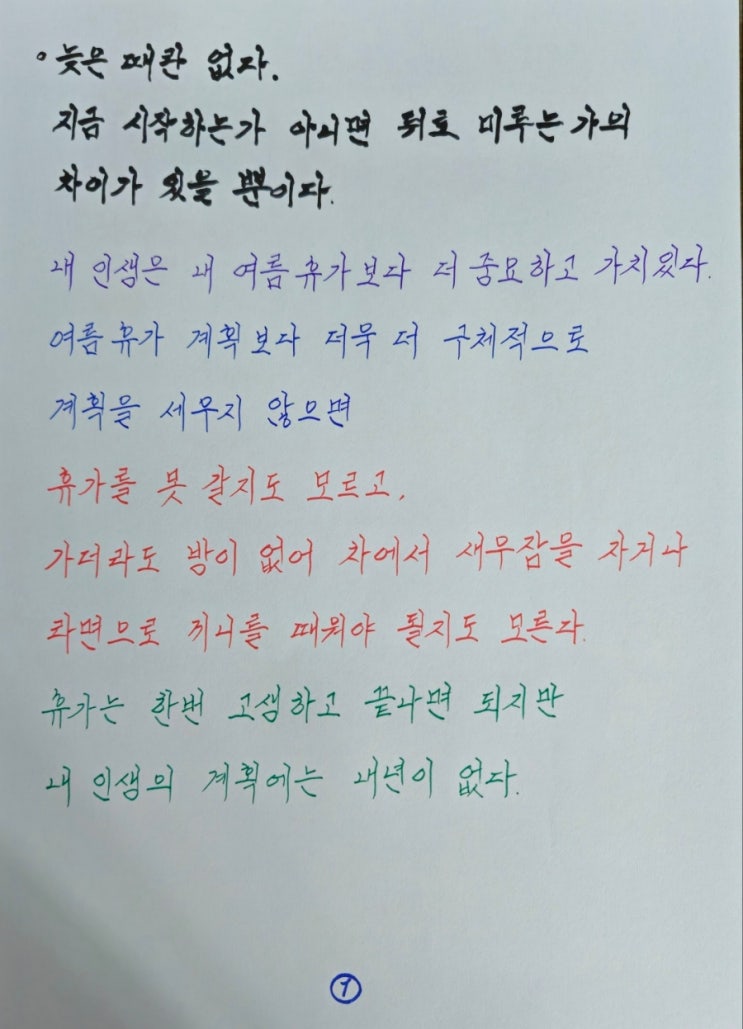 ◦ 늦은 때란 없다.
지금 시작하는가 아니면 뒤로 미루는가의
차이가 있을 뿐이다.
내 인생은 내 여름휴가보다 더 중요하고 가치있다.
여름휴가 계획보다 더욱 더 구체적으로
계획을 세우지 않으면
휴가를 못 갈지도 모르고,
가더라도 방이 없어 차에서 새우잠을 자거나
라면으로 끼니를 때워야 될지도 모른다.
휴가는 한번 고생하고 끝나면 되지만
내 인생의 계획에는 내년이 없다.